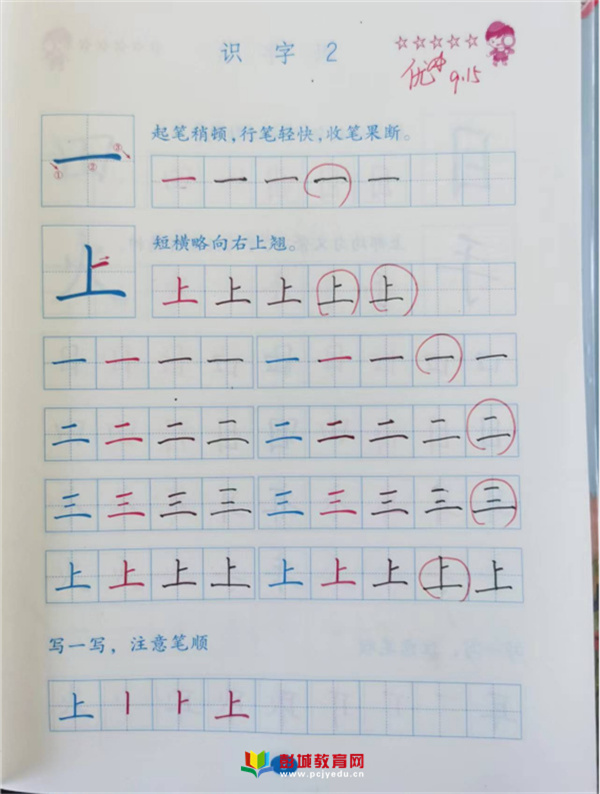 识 字 2
优 9.15
一 ① ② ③ 起笔稍顿,行笔轻快,收笔果断。
一 一 一 一 一
上 短横略向右上翘。
上 上 上 上 上
一 一 一 一 一 一 一 一 一
二 二 二 二 二 二 二 二 二
三 三 三 三 三 三 三 三 三
上 上 上 上 上 上 上 上 上
写一写,注意笔顺
上 丨 ⺊ 上
彭城教育网
www.pcjyedu.cn